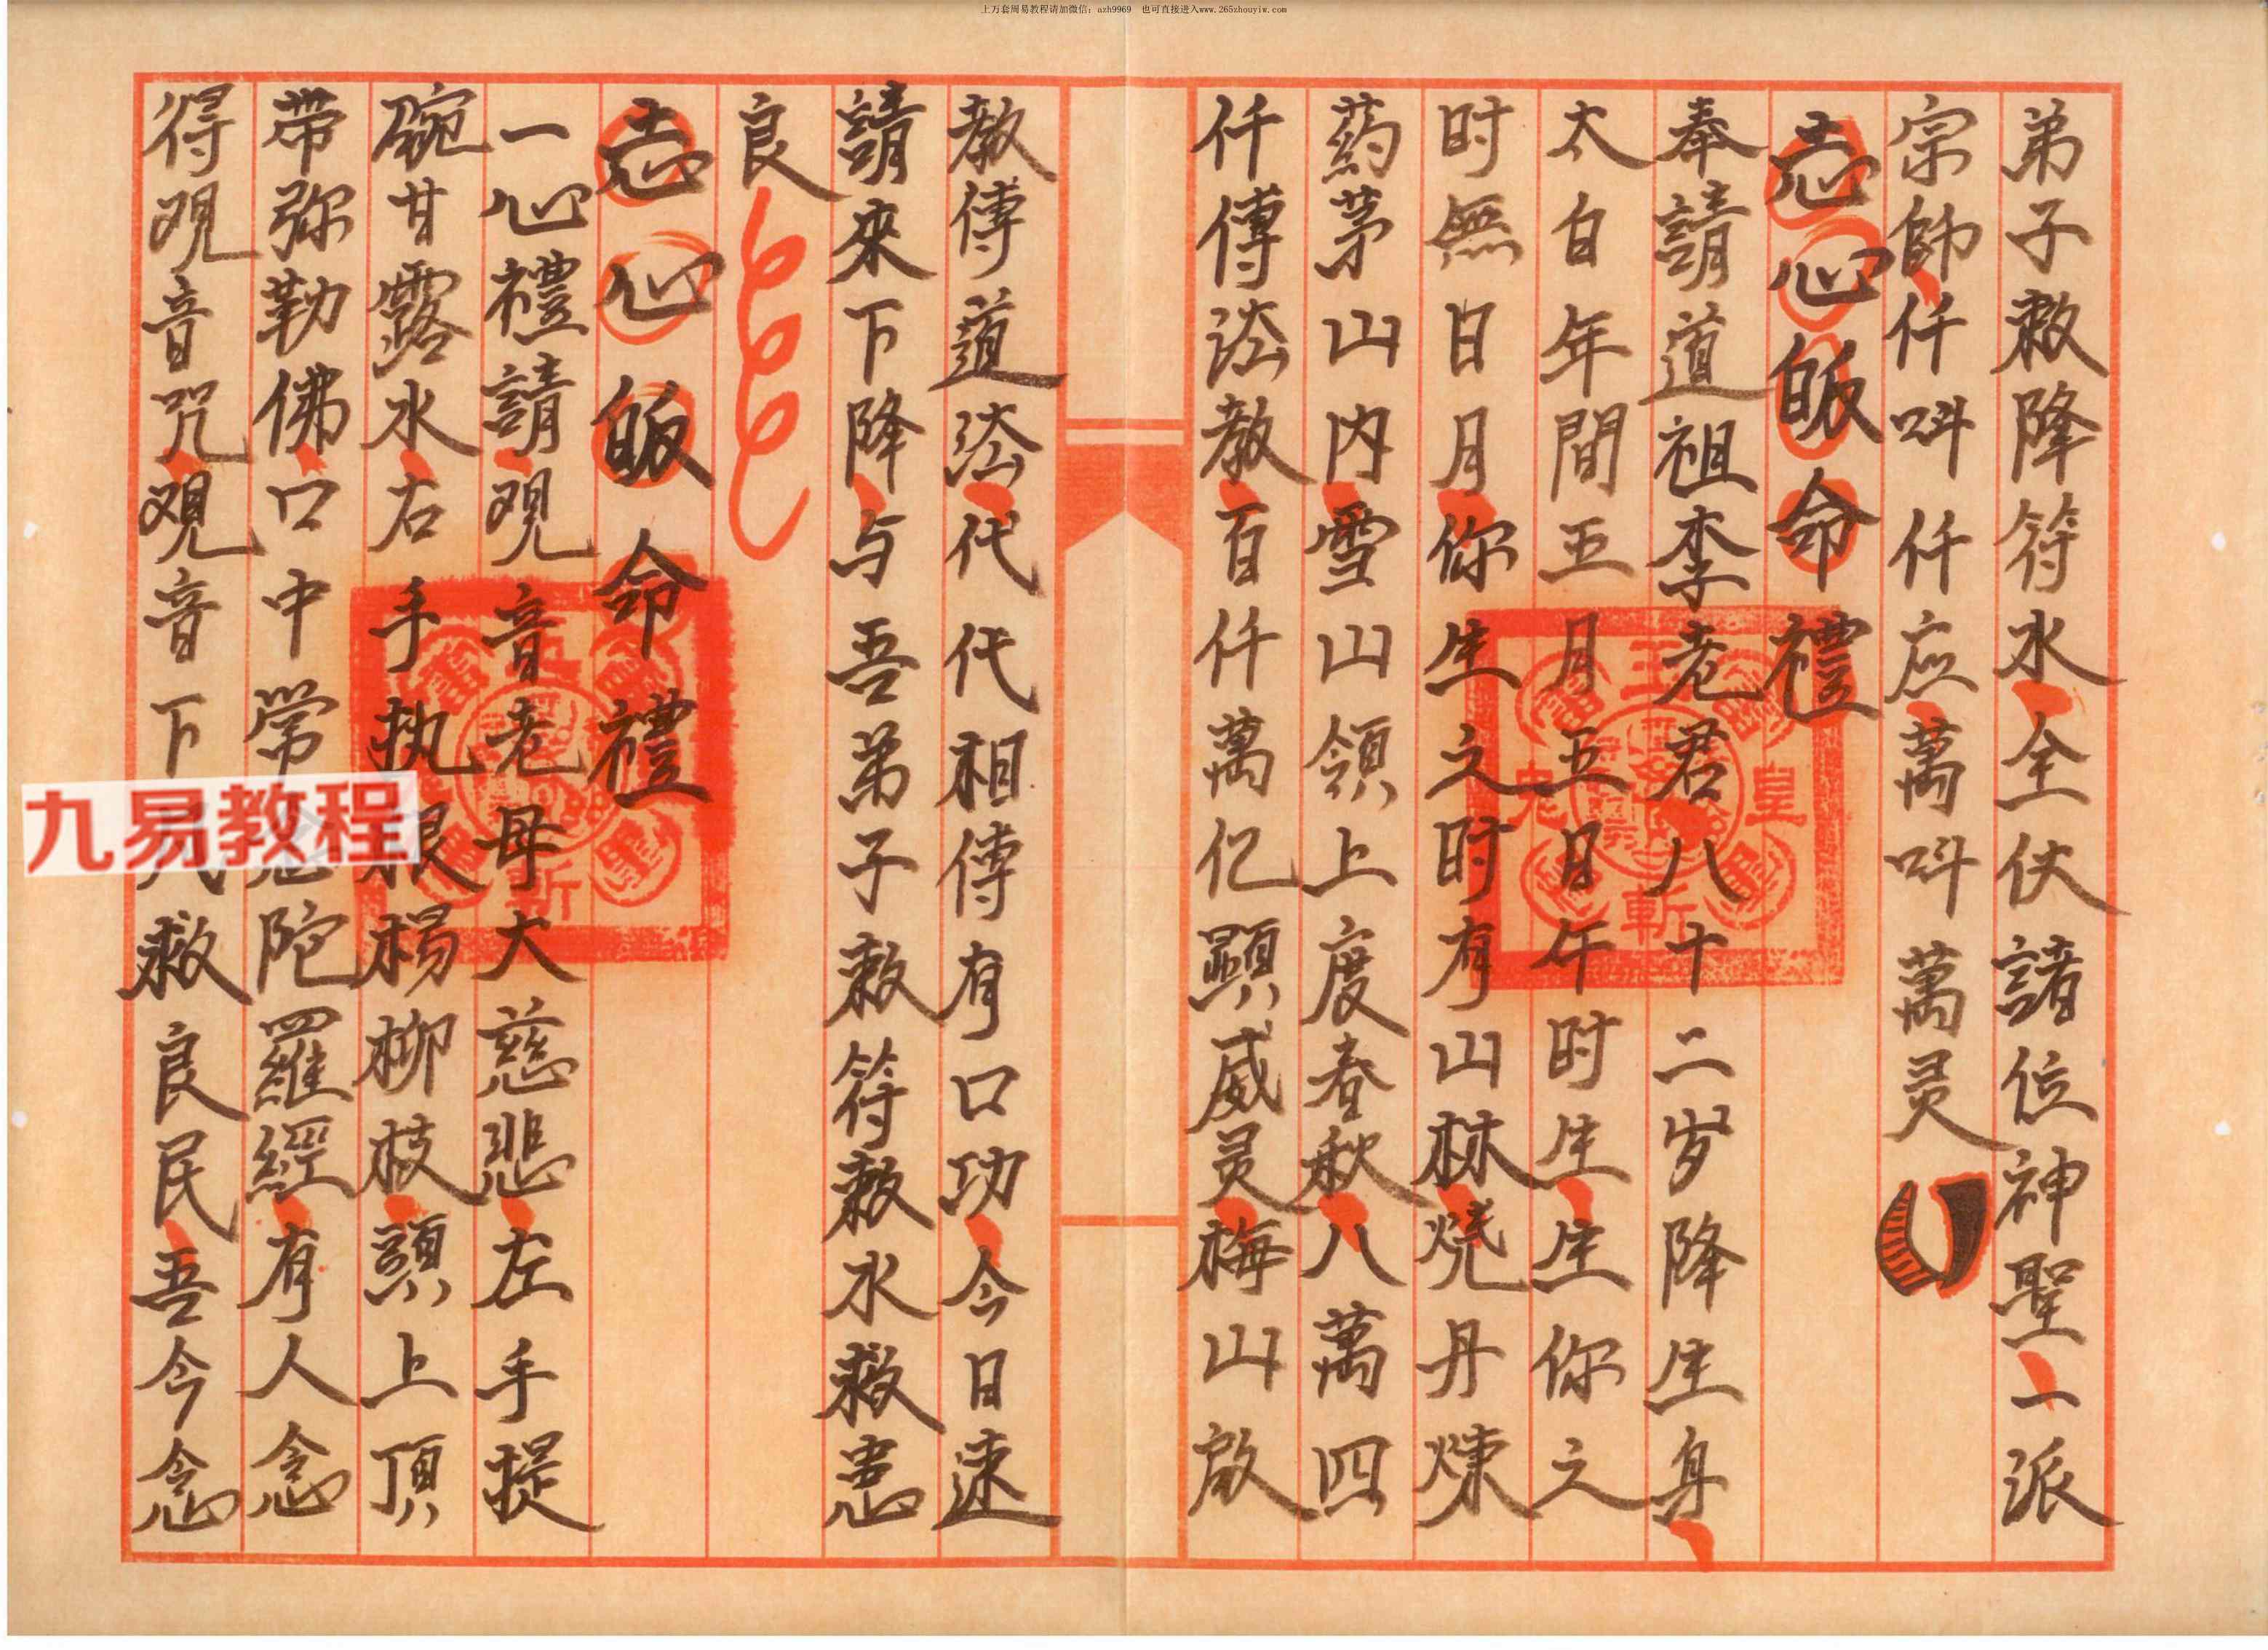 上万套周易教程请加微信：azh9969 也可直接进入www.265zhouyiw.com
弟子敕降符水全伏諸位神聖一派
宗師仟叫仟应萬叫萬灵
志心皈命禮
奉請道祖李老君八十二岁降生身
太白年間五月五日午时生生你之
时無日月你生之时有山林烧丹煉
药茅山内雪山領上度春秋八萬四
仟傳法教百仟萬亿顕威灵梅山啟
教傳道法代代相傳有口功今日速
請來下降与吾弟子敕符敕水救患
良
志心皈命禮
一心禮請观音老母大慈悲左手提
碗甘露水右手执根楊柳枝頭上頂
带弥勒佛口中常念陀羅經有人念
得观音咒观音下凡救良民吾今念
九易教程